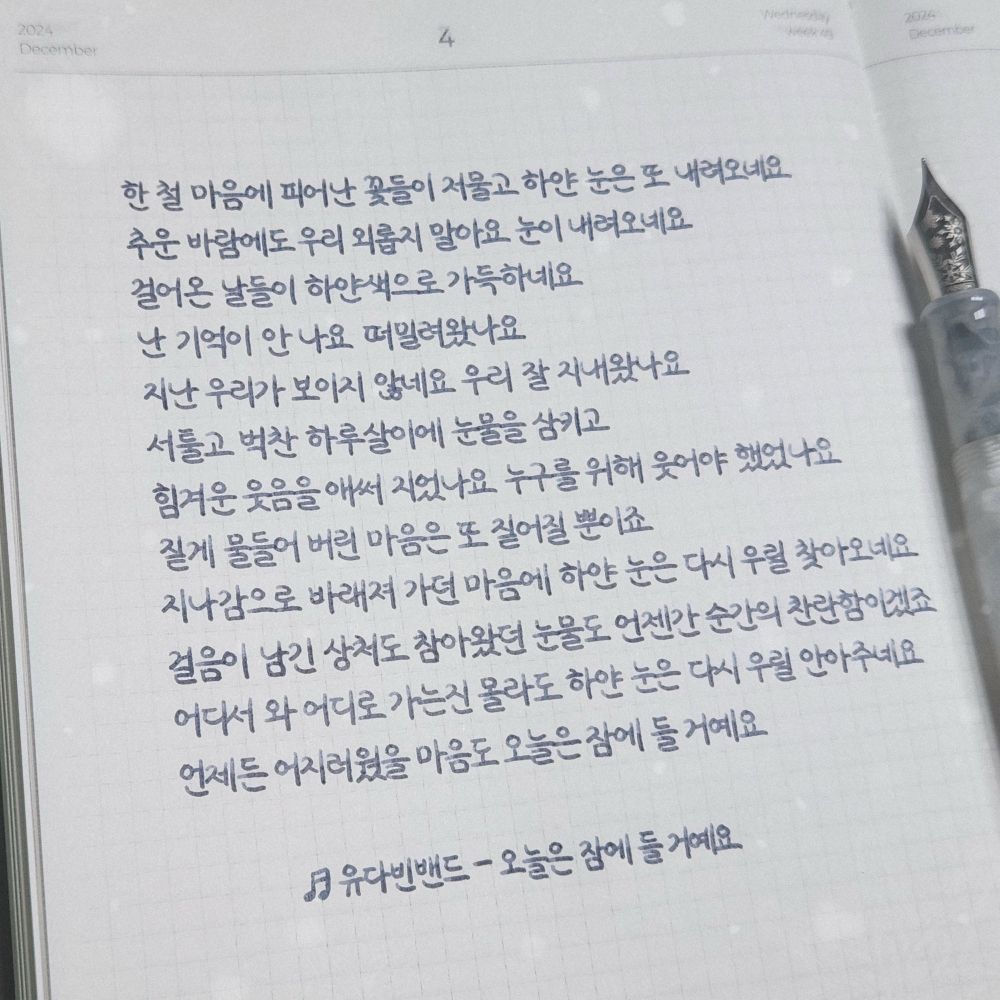 2024
December
4
Wednesday
week 49
2024
December
한 철 마음에 피어난 꽃들이 저물고 하얀 눈은 또 내려오네요
추운 바람에도 우리 외롭지 말아요 눈이 내려오네요
걸어온 날들이 하얀색으로 가득하네요
난 기억이 안 나요 떠밀려왔나요
지난 우리가 보이지 않네요 우리 잘 지내왔나요
서툴고 벅찬 하루살이에 눈물을 삼키고
힘겨운 웃음을 애써 지었나요 누구를 위해 웃어야 했었나요
짙게 물들어 버린 마음은 또 짙어질 뿐이죠
지나감으로 바래져 가던 마음에 하얀 눈은 다시 우릴 찾아오네요
걸음이 남긴 상처도 참아왔던 눈물도 언젠간 순간의 찬란함이겠죠
어디서 와 어디로 가는진 몰라도 하얀 눈은 다시 우릴 안아주네요
언제든 어지러웠을 마음도 오늘은 잠에 들 거예요
♬ 유다빈밴드 - 오늘은 잠에 들 거예요